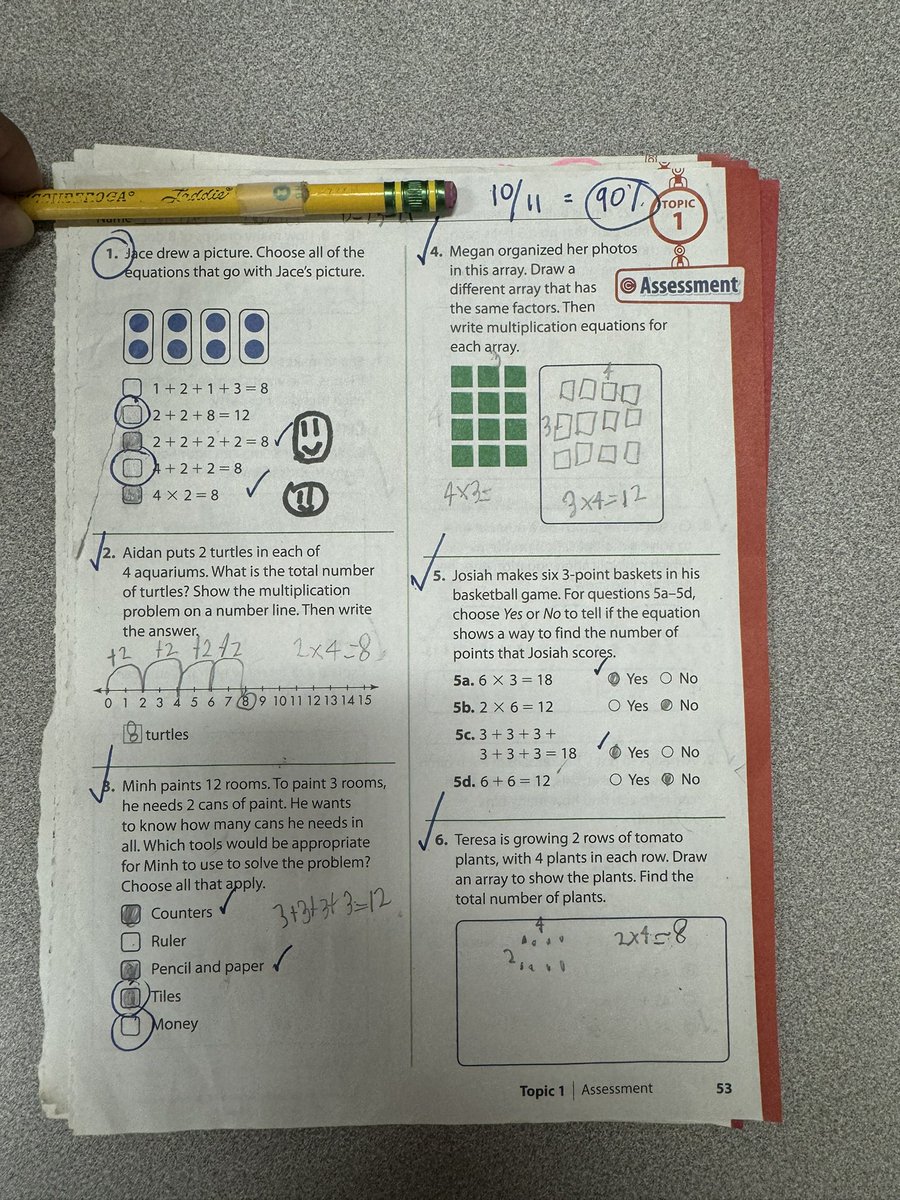 Laddie
10/11 = 90%
TOPIC
1
Assessment
1. Jace drew a picture. Choose all of the
equations that go with Jace's picture.
1 + 2 + 1 + 3 = 8
2 + 2 + 8 = 12
2 + 2 + 2 + 2 = 8
4 + 2 + 2 = 8
4 × 2 = 8
2. Aidan puts 2 turtles in each of
4 aquariums. What is the total number
of turtles? Show the multiplication
problem on a number line. Then write
the answer.
+2 +2 +2 +2 2×4=8
0 1 2 3 4 5 6 7 8 9 10 11 12 13 14 15
8 turtles
3. Minh paints 12 rooms. To paint 3 rooms,
he needs 2 cans of paint. He wants
to know how many cans he needs in
all. Which tools would be appropriate
for Minh to use to solve the problem?
Choose all that apply.
Counters 3+3+3+3=12
Ruler
Pencil and paper
Tiles
Money
4. Megan organized her photos
in this array. Draw a
different array that has
the same factors. Then
write multiplication equations for
each array.
3
4
4
3
4×3=
3×4=12
5. Josiah makes six 3-point baskets in his
basketball game. For questions 5a–5d,
choose Yes or No to tell if the equation
shows a way to find the number of
points that Josiah scores.
5a. 6 × 3 = 18 Yes No
5b. 2 × 6 = 12 Yes No
5c. 3 + 3 + 3 +
3 + 3 + 3 = 18 Yes No
5d. 6 + 6 = 12 Yes No
6. Teresa is growing 2 rows of tomato
plants, with 4 plants in each row. Draw
an array to show the plants. Find the
total number of plants.
4
2
2×4=8
Topic 1 | Assessment 53